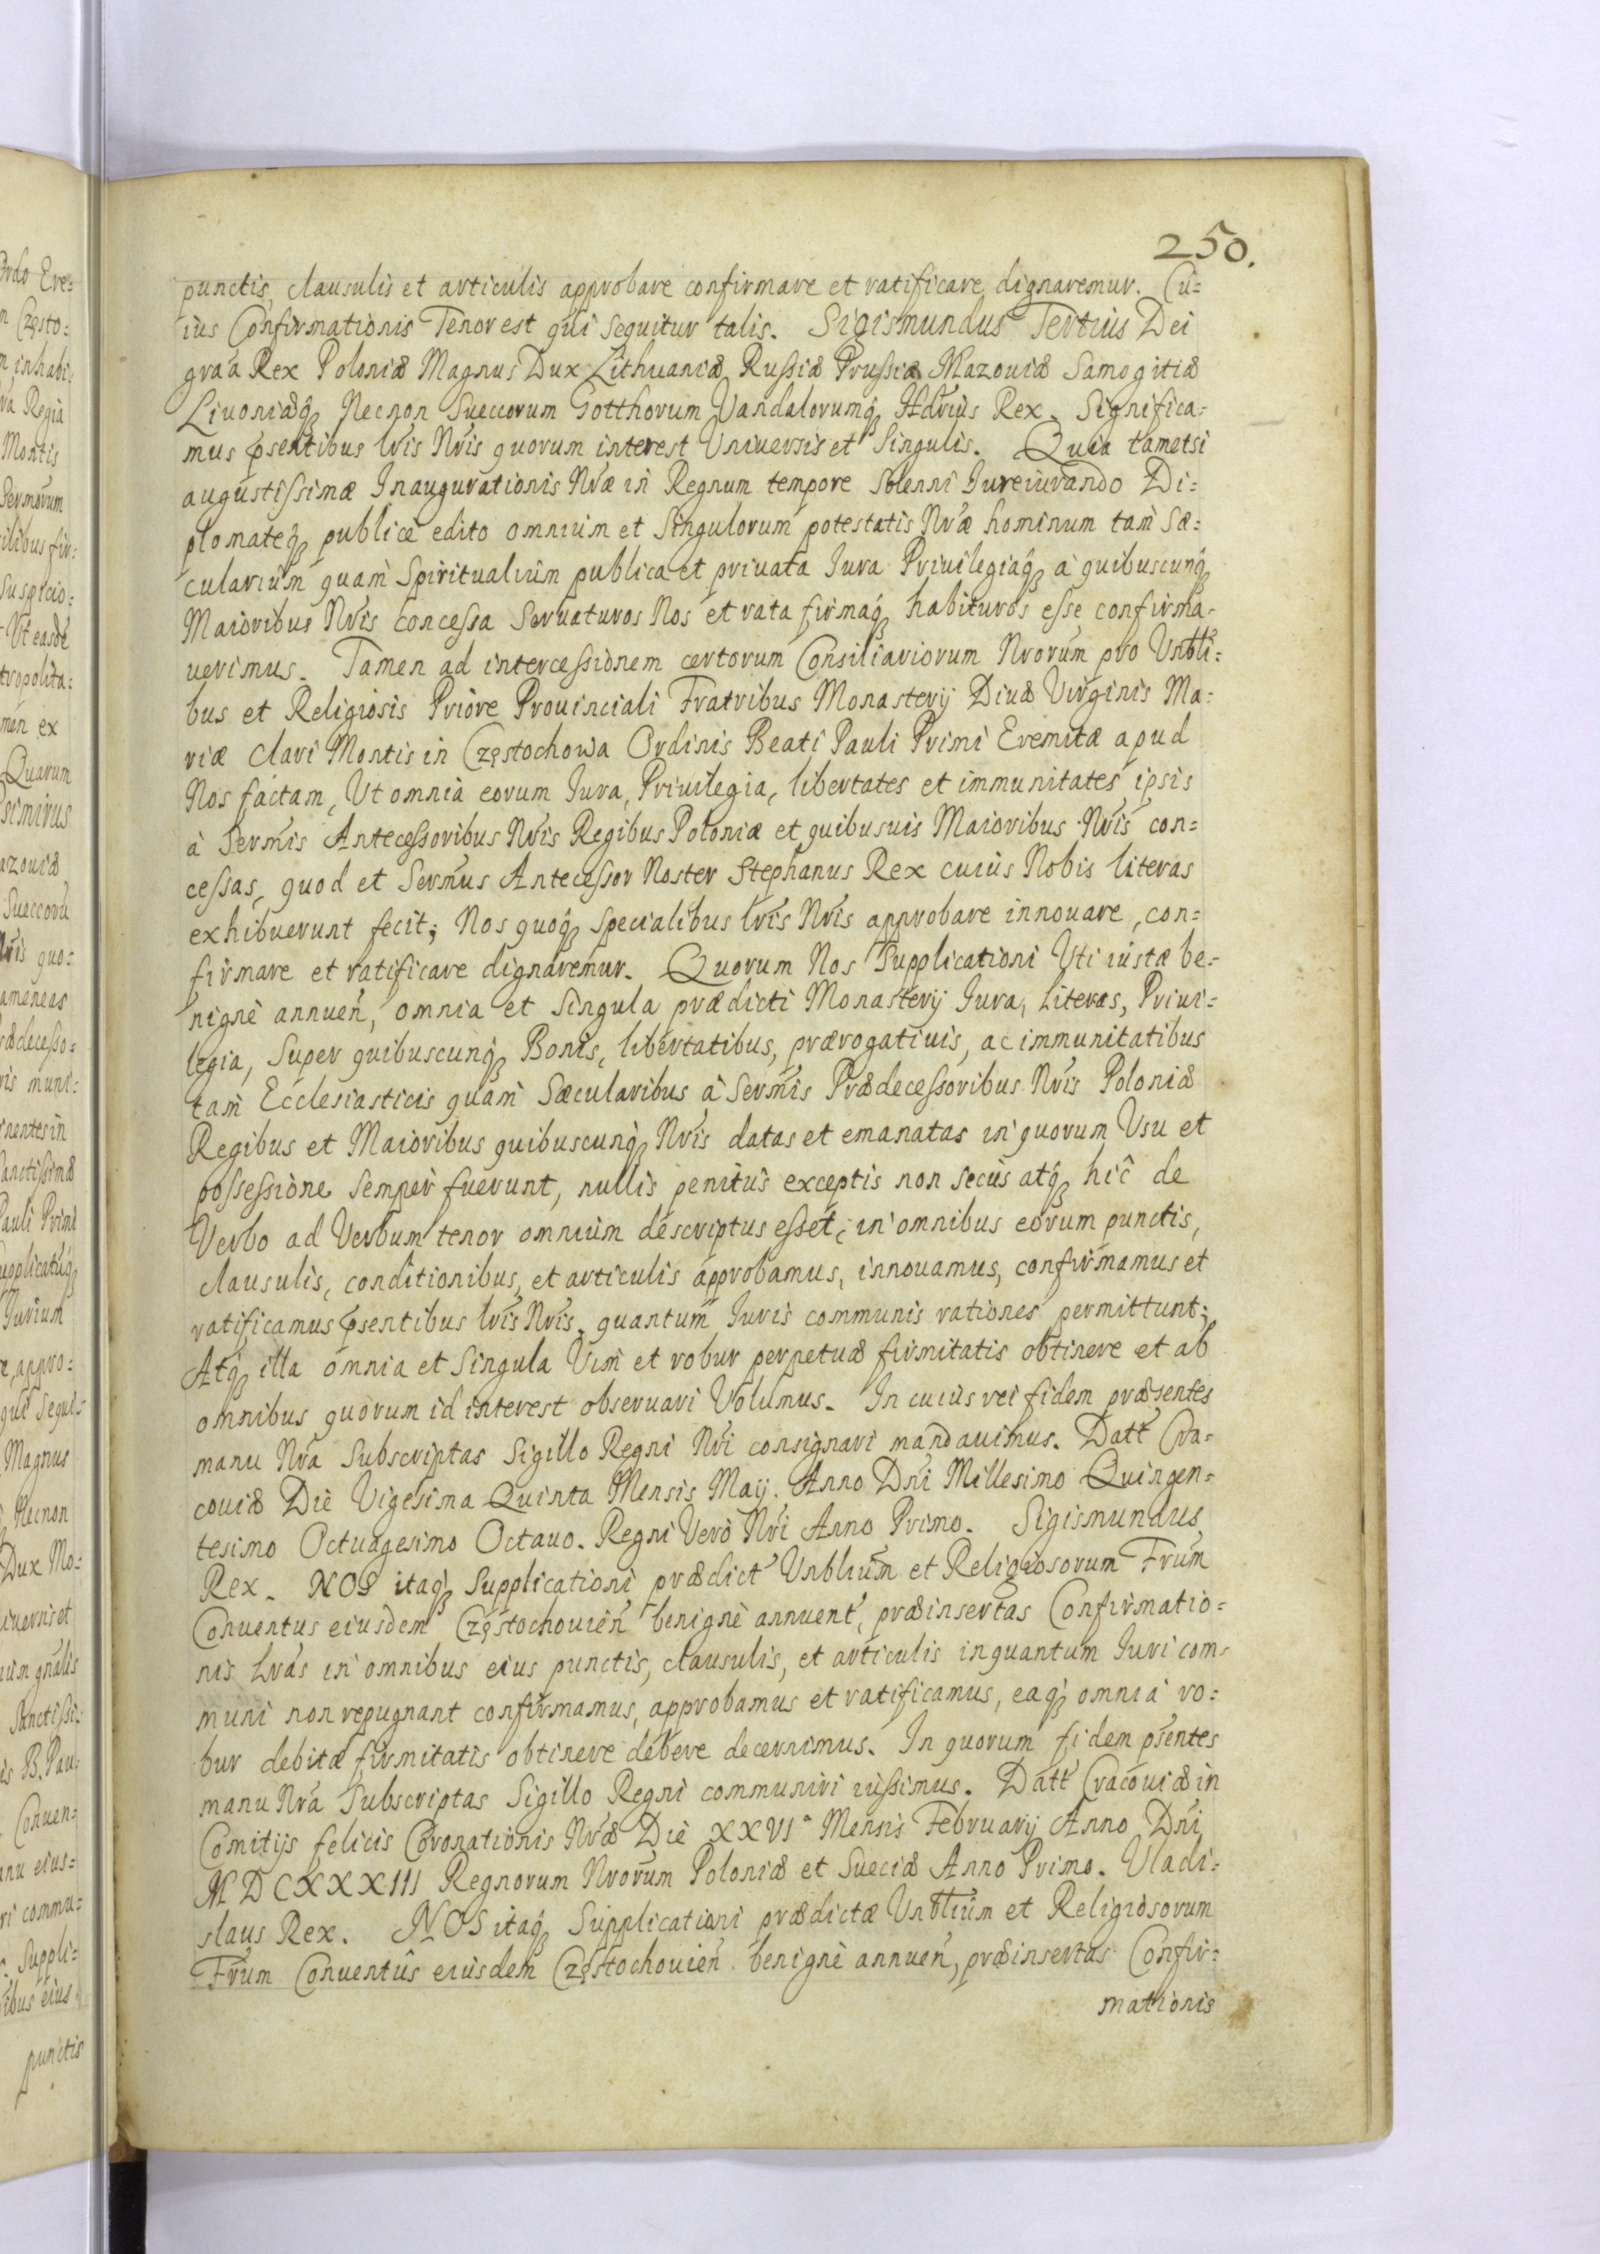 250.
punctis, clausulis et articulis approbare confirmare et ratificare dignaremur. Cu=
ius Confirmationis Tenor est qui sequitur talis. Sigismundus Tertius Dei
graa Rex Poloniæ Magnus Dux Lithuaniæ Russiæ Prussiæ Mazouiæ Samogitiæ
Liuoniæq3 Necnon Sueccorum Gotthorum Vandalorumq3 Hdrius Rex. Significa=
mus psentibus lris Nris quorum interest Vniuersis et Singulis. Quia tametsi
augustissimæ Inaugurationis Nræ in Regnum tempore solenni Iureiurando Di=
plomateq3 publicè edito omnium et Singulorum potestatis Nræ hominum tam Sæ=
cularium quam Spiritualium publica et priuata Iura Priuilegiaq3 à quibuscunq3
Maioribus Nris concessa Seruaturos Nos et rata firmaq3 habituros esse confirma=
uerimus. Tamen ad intercessionem certorum Consiliariorum Nrorum pro Vnbli=
bus et Religiosis Priore Prouinciali Fratribus Monasterij Diuæ Virginis Ma=
riæ Clari Montis in Częstochowa Ordinis Beati Pauli Primi Eremitæ apud
Nos factam, Vt omnia eorum Iura, Priuilegia, libertates et immunitates ipsis
à Sermis Antecessoribus Nris Regibus Poloniæ et quibusuis Maioribus Nris con=
cessas, quod et Sermus Antecessor Noster Stephanus Rex cuius Nobis literas
exhibuerunt fecit; Nos quoq3 specialibus lris Nris approbare innouare, con=
firmare et ratificare dignaremur. Quorum Nos Supplicationi Vti iustæ be=
nignè annuen, omnia et singula prædicti Monasterij Iura, Literas, Priui=
legia, Super quibuscunq3 Bonis, libertatibus, prærogatiuis, ac immunitatibus
tam Ecclesiasticis quam Sæcularibus à Sermis Prædecessoribus Nris Poloniæ
Regibus et Maioribus quibuscunq3 Nris datas et emanatas in quorum Vsu et
possessione semper fuerunt, nullis penitus exceptis non secus atq3 hic de
Verbo ad Verbum tenor omnium descriptus esset, in omnibus eorum punctis,
clausulis, conditionibus, et articulis approbamus, innouamus, confirmamus et
ratificamus psentibus lris Nris, quantum Iuris communis rationes permittunt;
Atq3 illa omnia et singula Vim et robur perpetuæ firmitatis obtinere et ab
omnibus quorum id interest obseruari Volumus. In cuius rei fidem præsentes
manu Nra Subscriptas Sigillo Regni Nri consignari mandauimus. Datt Cra=
couiæ Die Vigesima Quinta Mensis Maij. Anno Dni Millesimo Quingen=
tesimo Octuagesimo Octauo. Regni Verò Nri Anno Primo. Sigismundus
Rex. NOS itaq3 Supplicationi prædict Vnblium et Religiosorum Frum
Conuentus eiusdem Częstochouien benignè annuent, præinsertas Confirmatio=
nis Lras in omnibus eius punctis, clausulis, et articulis inquantum Iuri com=
muni non repugnant confirmamus, approbamus et ratificamus, eaq3 omnia ro=
bur debitæ firmitatis obtinere debere decernimus. In quorum fidem psentes
manu Nra Subscriptas Sigillo Regni communiri iussimus. Datt Cracouiæ in
Comitijs felicis Coronationis Nræ Die XXVIa Mensis Februarij Anno Dni
MDCXXXIII Regnorum Nrorum Poloniæ et Sueciæ Anno Primo. Vladi=
slaus Rex. NOS itaq3 Supplicationi prædictæ Vnblium et Religiosorum
Frum Conuentûs eiusdem Częstochouien benignè annuen, præinsertas Confir=
mationis